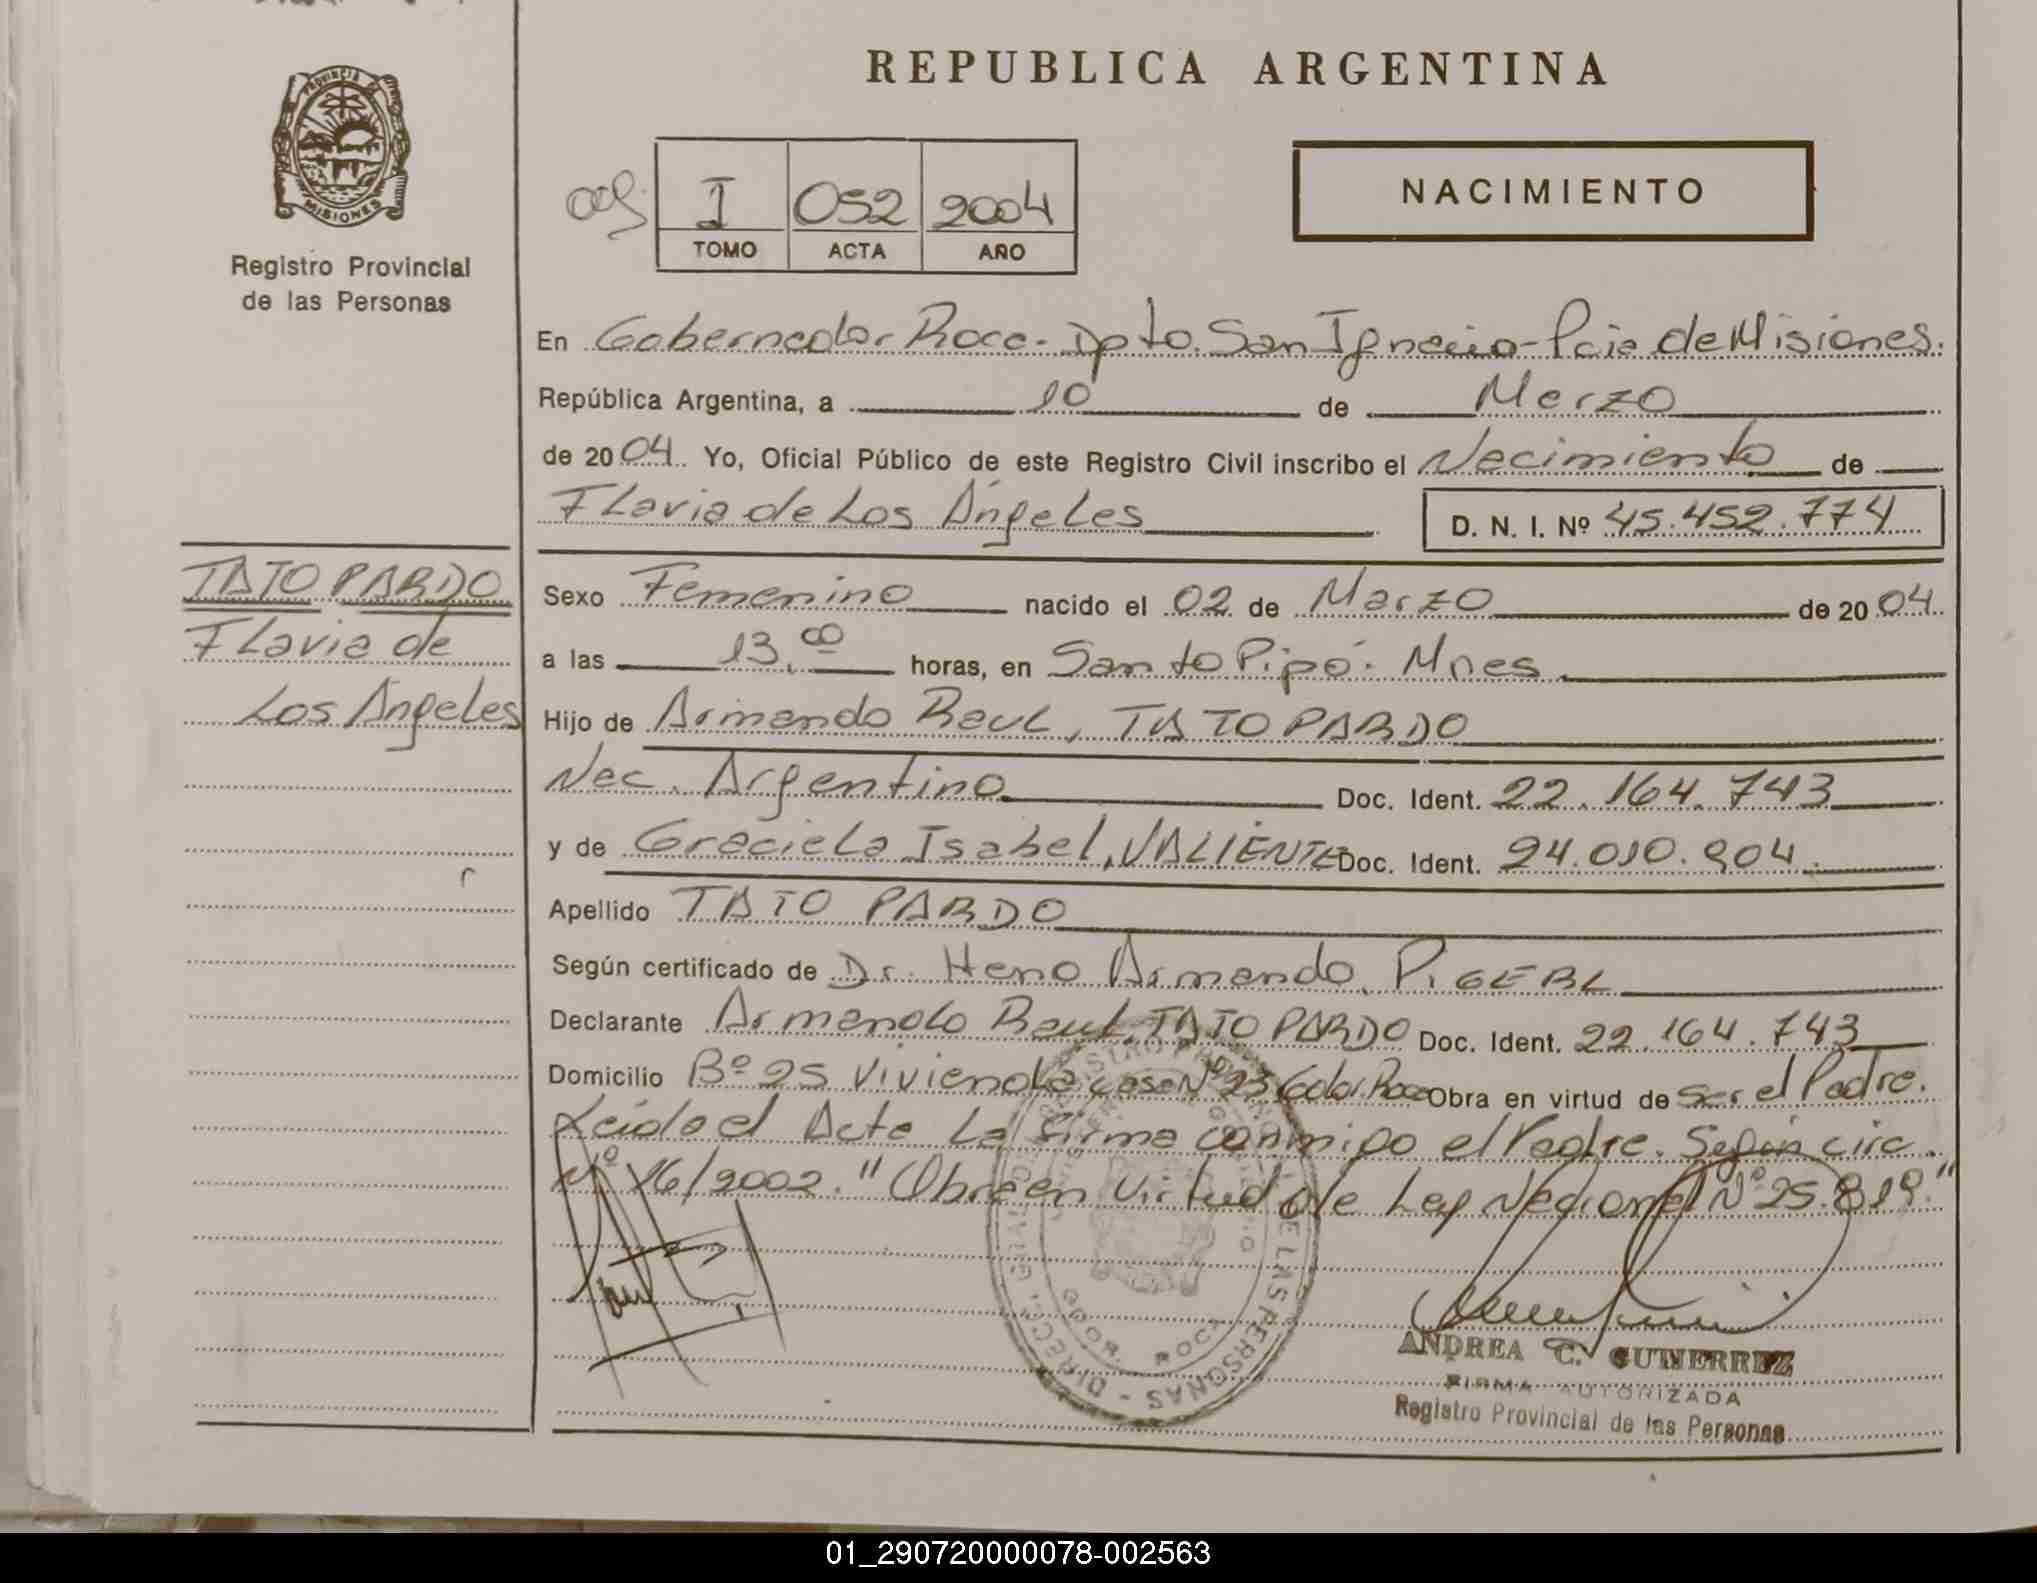 REPUBLICA ARGENTINA
PROVINCIA
MISIONES
Registro Provincial
de las Personas
I 052 2004
TOMO ACTA AÑO
NACIMIENTO
En Gobernador Roca. Dpto. San Ignacio - Pcia de Misiones.
República Argentina, a 10 de Marzo
de 2004. Yo, Oficial Público de este Registro Civil inscribo el Nacimiento de
Flavia de Los Ángeles D. N. I. Nº 45.452.774
TATO PARDO
Flavia de
Los Ángeles
Sexo Femenino nacido el 02 de Marzo de 2004.
a las 13.00 horas, en Santo Pipó. Mnes.
Hijo de Armando Raul, TATO PARDO
Nac. Argentino Doc. Ident. 22.164.743
y de Graciela Isabel, VALIENTE Doc. Ident. 24.010.904.
Apellido TATO PARDO
Según certificado de Dr. Heno Armando, P.
Declarante Armando Raul, TATO PARDO Doc. Ident. 22.164.743
Domicilio Bº 25 Vivienda casa Nº 23 Gdor. Roca Obra en virtud de ser el Padre.
Leida el Acta La firma conmigo el Padre. Según circ.
Nº 16/2002. "Obra en Virtud de Ley Nacional Nº 25.819."
DE LAS PERSONAS - DIRECC.
GDOR. ROCA
ANDREA C. GUTIERREZ
FIRMA AUTORIZADA
Registro Provincial de las Personas
01_290720000078-002563